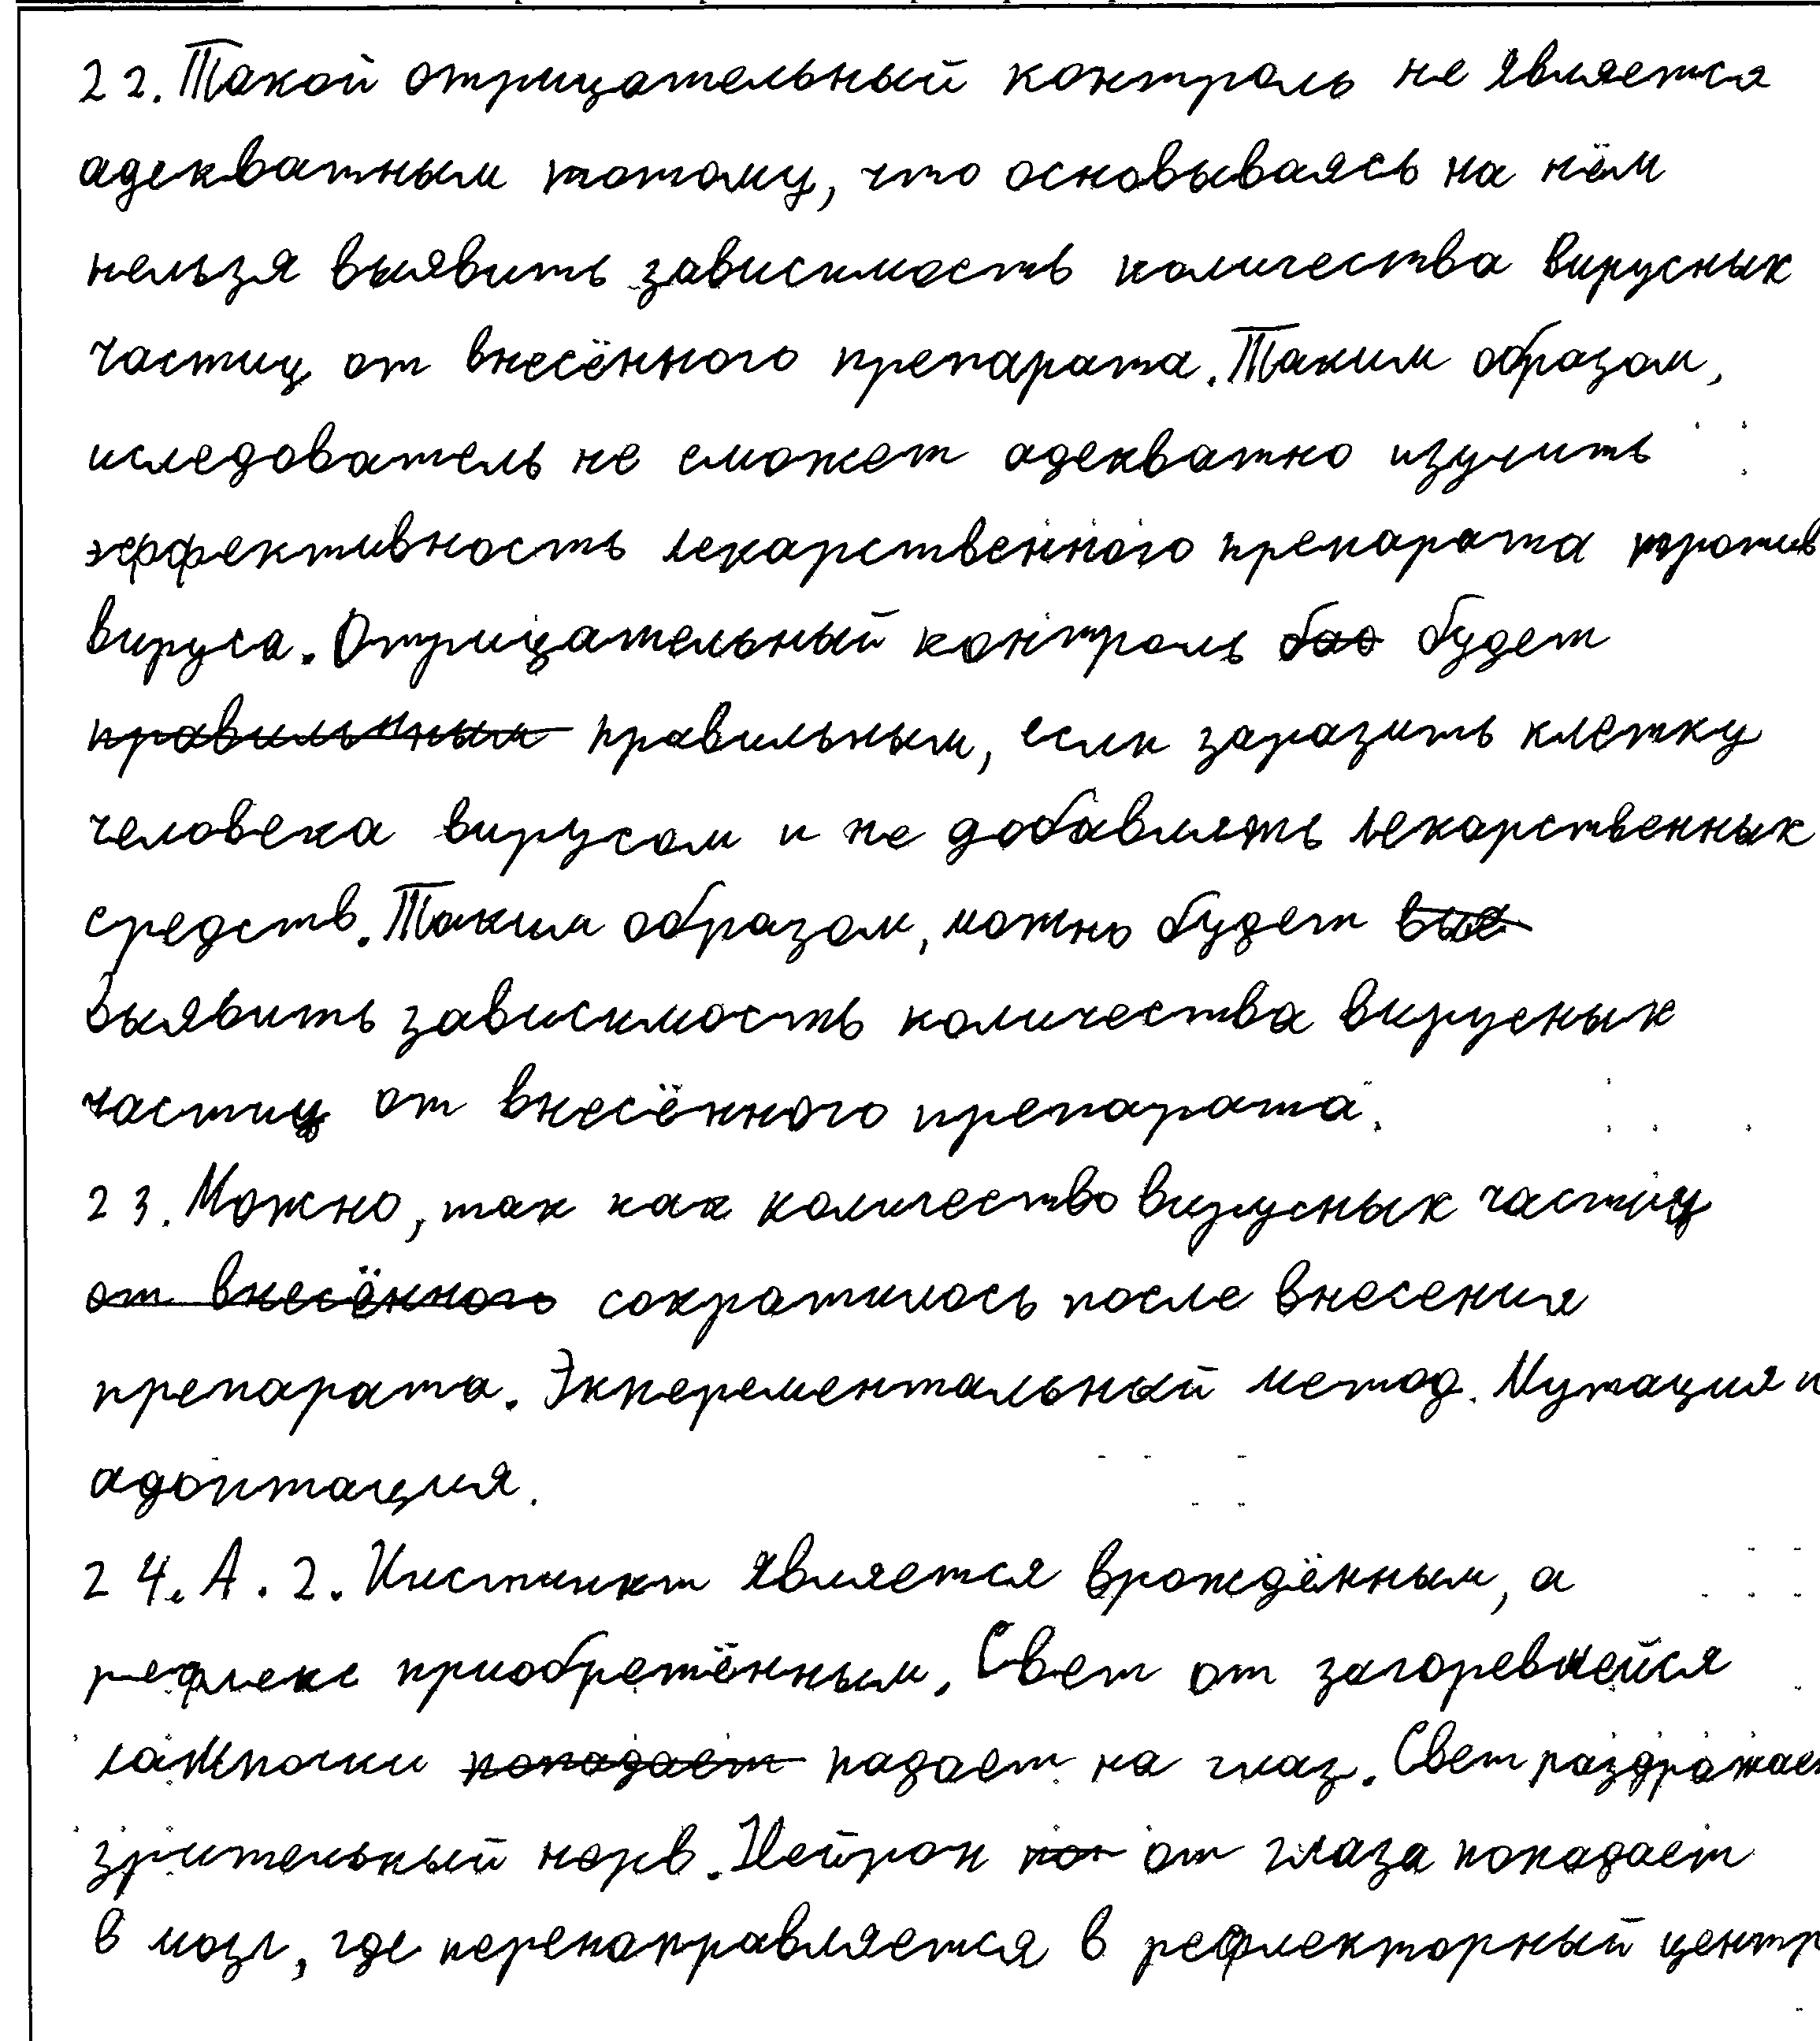 22. Такой отрицательный контроль не является
адекватным потому, что основываясь на нём
нельзя выявить зависимость количества вирусных
частиц от внесённого препарата. Таким образом,
иследователь не сможет адекватно изучить
эффективность лекарственного препарата против
вируса. Отрицательный контроль будет
правильным, если заразить клетку
человека вирусом и не добавлять лекарственных
средств. Таким образом, можно будет
выявить зависимость количества вирусных
частиц от внесённого препарата.
23. Можно, так как количество вирусных частиц
от внесённого сократилось после внесения
препарата. Экперементальный метод. Мутация и
адоптация.
24. А. 2. Инстинкт является врождённым, а
рефлекс приобретённым. Свет от загоревшейся
лампочки попадает падает на глаз. Свет раздражает
зрительный нерв. Нейрон от глаза попадает
в мозг, где перенаправляется в рефлекторный центр